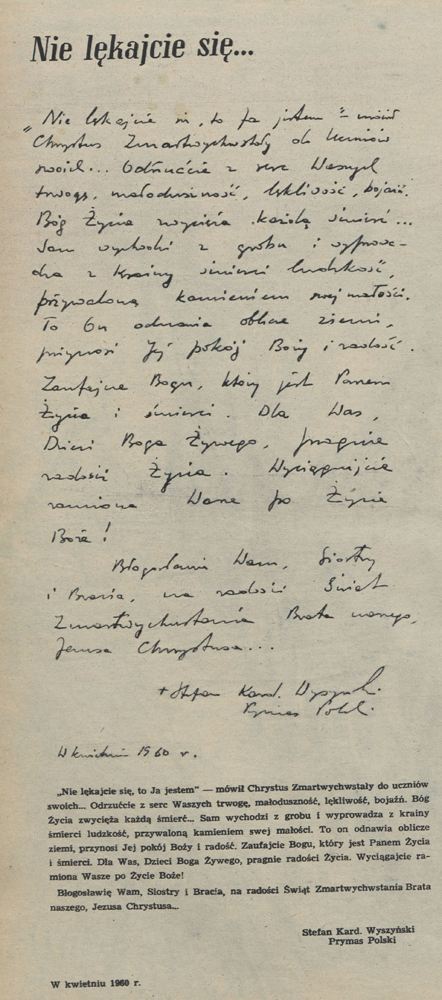 Nie lękajcie się...
„Nie lękajcie się, to Ja jestem" – mówił
Chrystus Zmartwychwstały do Uczniów
swoich... Odrzućcie z serc Waszych
trwogę, małoduszność, lękliwość, bojaźń.
Bóg Życia zwycięża każdą śmierć...
Sam wychodzi z grobu i wyprowa-
dza z krainy śmierci ludzkość,
przywaloną kamieniem swej małości.
To On odnawia oblicze ziemi,
przynosi Jej pokój Boży i radość.
Zaufajcie Bogu, który jest Panem
Życia i śmierci. Dla Was,
Dzieci Boga Żywego, pragnie
radości Życia. Wyciągnijcie
ramiona Wasze po Życie
Boże!
Błogosławię Wam, Siostry
i Bracia, na radości Świąt
Zmartwychwstania Brata naszego,
Jezusa Chrystusa...
+ Stefan Kard. Wyszyński
Prymas Polski
W kwietniu 1960 r.
„Nie lękajcie się, to Ja jestem" — mówił Chrystus Zmartwychwstały do uczniów
swoich... Odrzućcie z serc Waszych trwogę, małoduszność, lękliwość, bojaźń. Bóg
Życia zwycięża każdą śmierć... Sam wychodzi z grobu i wyprowadza z krainy
śmierci ludzkość, przywaloną kamieniem swej małości. To on odnawia oblicze
ziemi, przynosi Jej pokój Boży i radość. Zaufajcie Bogu, który jest Panem Życia
i śmierci. Dla Was, Dzieci Boga Żywego, pragnie radości Życia. Wyciągajcie ra-
miona Wasze po Życie Boże!
Błogosławię Wam, Siostry i Bracia, na radości Świąt Zmartwychwstania Brata
naszego, Jezusa Chrystusa...
Stefan Kard. Wyszyński
Prymas Polski
W kwietniu 1960 r.